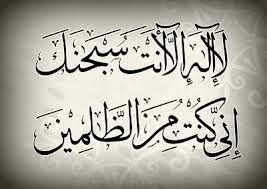 لَا إِلَهَ إِلَّا أَنتَ سُبْحَنَكَ
إِنِّي كُنتُ مِنَ الظَّلِمِينَ